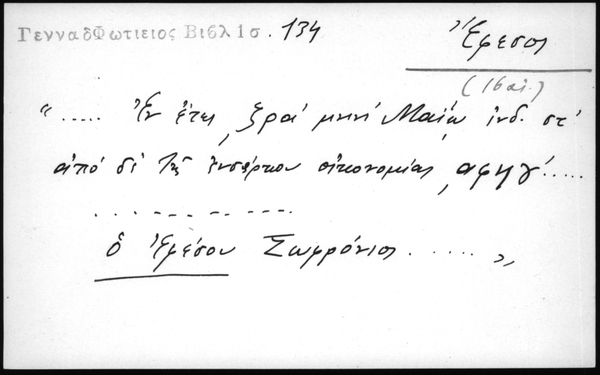 ΓενναδΦωτιειος Βιβλ 1σ. 134
Ἔφεσος
(16 αἰ.)
“..... Ἐν ἔτει ͵ζρα΄ μηνί Μαΐῳ ἰνδ. στ΄
ἀπό δέ τῆς ἐνσάρκου οἰκονομίας ͵αφϟγ΄.....
. . . . . . . . . . .
ὁ Ἐφέσου Σωφρόνιος ..... ”